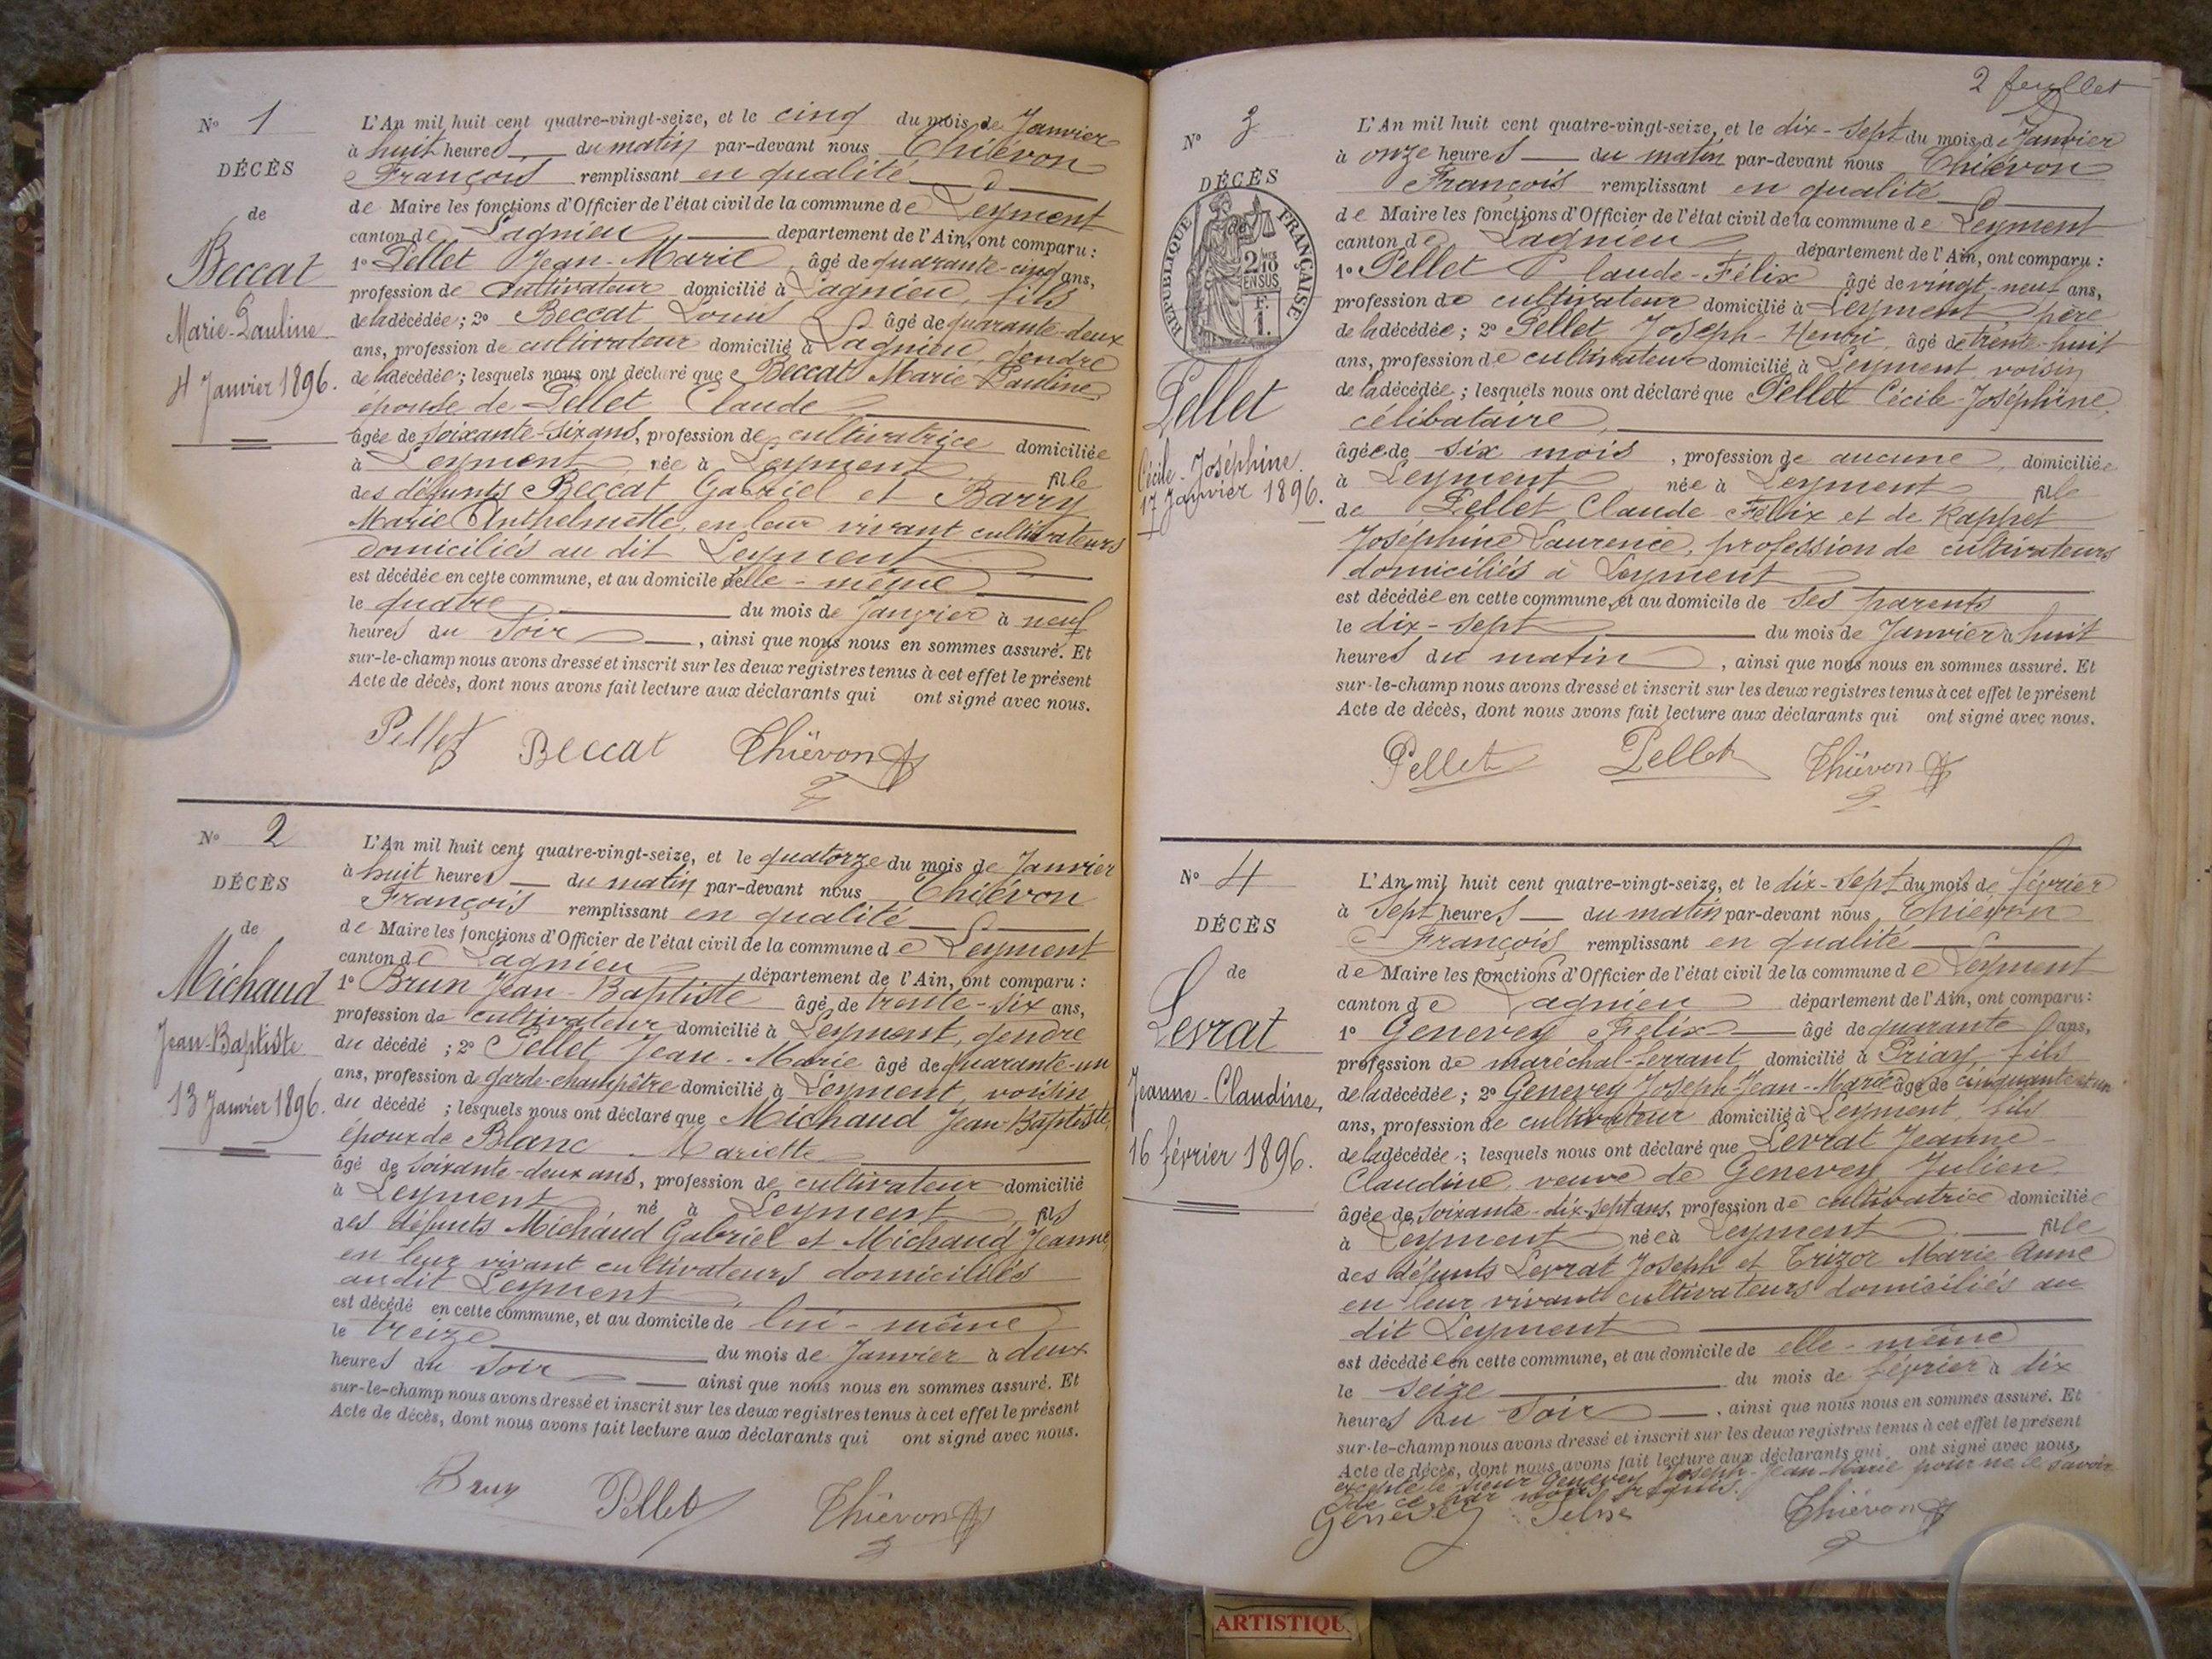 N° 1
DÉCÈS
de
Beccat
Marie-Pauline
4 Janvier 1896.
L'An mil huit cent quatre-vingt-seize, et le cinq du mois de Janvier
à huit heures du matin par-devant nous Thiévon
François remplissant en qualité
de Maire les fonctions d'Officier de l'état civil de la commune de Leyment
canton de Lagnieu département de l'Ain, ont comparu :
1° Pellet Jean-Marie âgé de quarante-cinq ans,
profession de cultivateur domicilié à Lagnieu, fils
de la décédée ; 2° Beccat Louis âgé de quarante-deux
ans, profession de cultivateur domicilié à Lagnieu, gendre
de la décédée ; lesquels nous ont déclaré que Beccat Marie Pauline,
épouse de Pellet Claude
âgée de soixante-six ans, profession de cultivatrice domiciliée
à Leyment née à Leyment fille
des défunts Beccat Gabriel et Barry
Marie Anthelmette, en leur vivant cultivateurs
domiciliés au dit Leyment
est décédée en cette commune, et au domicile d'elle-même
le quatre du mois de Janvier à neuf
heures du soir, ainsi que nous nous en sommes assuré. Et
sur-le-champ nous avons dressé et inscrit sur les deux registres tenus à cet effet le présent
Acte de décès, dont nous avons fait lecture aux déclarants qui ont signé avec nous.
Pellet Beccat Thiévon
N° 2
DÉCÈS
de
Michaud
Jean-Baptiste
13 Janvier 1896.
L'An mil huit cent quatre-vingt-seize, et le quatorze du mois de Janvier
à huit heures du matin par-devant nous Thiévon
François remplissant en qualité
de Maire les fonctions d'Officier de l'état civil de la commune de Leyment
canton de Lagnieu département de l'Ain, ont comparu :
1° Brun Jean-Baptiste âgé de trente-six ans,
profession de cultivateur domicilié à Leyment, gendre
du décédé ; 2° Pellet Jean-Marie âgé de quarante-un
ans, profession de garde-champêtre domicilié à Leyment, voisin
du décédé ; lesquels nous ont déclaré que Michaud Jean-Baptiste,
époux de Blanc Mariette
âgé de soixante-deux ans, profession de cultivateur domicilié
à Leyment né à Leyment fils
des défunts Michaud Gabriel et Michaud Jeanne,
en leur vivant cultivateurs domiciliés
au dit Leyment
est décédé en cette commune, et au domicile de lui-même
le treize du mois de Janvier à deux
heures du soir ainsi que nous nous en sommes assuré. Et
sur-le-champ nous avons dressé et inscrit sur les deux registres tenus à cet effet le présent
Acte de décès, dont nous avons fait lecture aux déclarants qui ont signé avec nous.
Brun Pellet Thiévon
2 feuillet
N° 3
DÉCÈS
de
RÉPUBLIQUE FRANÇAISE
2/10 EN SUS
F.
1.
Pellet
Cécile-Joséphine.
17 Janvier 1896.
L'An mil huit cent quatre-vingt-seize, et le dix-sept du mois de Janvier
à onze heures du matin par-devant nous Thiévon
François remplissant en qualité
de Maire les fonctions d'Officier de l'état civil de la commune de Leyment
canton de Lagnieu département de l'Ain, ont comparu :
1° Pellet Claude-Félix âgé de vingt-neuf ans,
profession de cultivateur domicilié à Leyment père
de la décédée ; 2° Pellet Joseph-Henri âgé de trente-huit
ans, profession de cultivateur domicilié à Leyment, voisin
de la décédée ; lesquels nous ont déclaré que Pellet Cécile-Joséphine,
célibataire,
âgée de six mois, profession de aucune, domiciliée
à Leyment née à Leyment fille
de Pellet Claude Félix et de Rappet
Joséphine Laurence, profession de cultivateurs
domiciliés à Leyment
est décédée en cette commune, et au domicile de ses parents
le dix-sept du mois de Janvier à huit
heures du matin, ainsi que nous nous en sommes assuré. Et
sur-le-champ nous avons dressé et inscrit sur les deux registres tenus à cet effet le présent
Acte de décès, dont nous avons fait lecture aux déclarants qui ont signé avec nous.
Pellet Pellet Thiévon
N° 4
DÉCÈS
de
Levrat
Jeanne-Claudine,
16 février 1896.
L'An mil huit cent quatre-vingt-seize, et le dix-sept du mois de février
à sept heures du matin par-devant nous Thiévon
François remplissant en qualité
de Maire les fonctions d'Officier de l'état civil de la commune de Leyment
canton de Lagnieu département de l'Ain, ont comparu :
1° Genevey Félix âgé de quarante ans,
profession de maréchal-ferrant domicilié à Priay, fils
de la décédée ; 2° Genevey Joseph-Jean-Marie âgé de cinquante et un
ans, profession de cultivateur domicilié à Leyment, fils
de la décédée ; lesquels nous ont déclaré que Levrat Jeanne-
Claudine, veuve de Genevey Julien
âgée de soixante-dix-sept ans, profession de cultivatrice domiciliée
à Leyment née à Leyment fille
des défunts Levrat Joseph et Trizor Marie-Anne
en leur vivant cultivateurs domiciliés au
dit Leyment
est décédée en cette commune, et au domicile de elle-même
le seize du mois de février à dix
heures du soir, ainsi que nous nous en sommes assuré. Et
sur-le-champ nous avons dressé et inscrit sur les deux registres tenus à cet effet le présent
Acte de décès, dont nous avons fait lecture aux déclarants qui ont signé avec nous,
excepté le sieur Genevey Joseph-Jean-Marie pour ne le savoir
de ce par nous requis.
Genevey Thiévon
ARTISTIQU